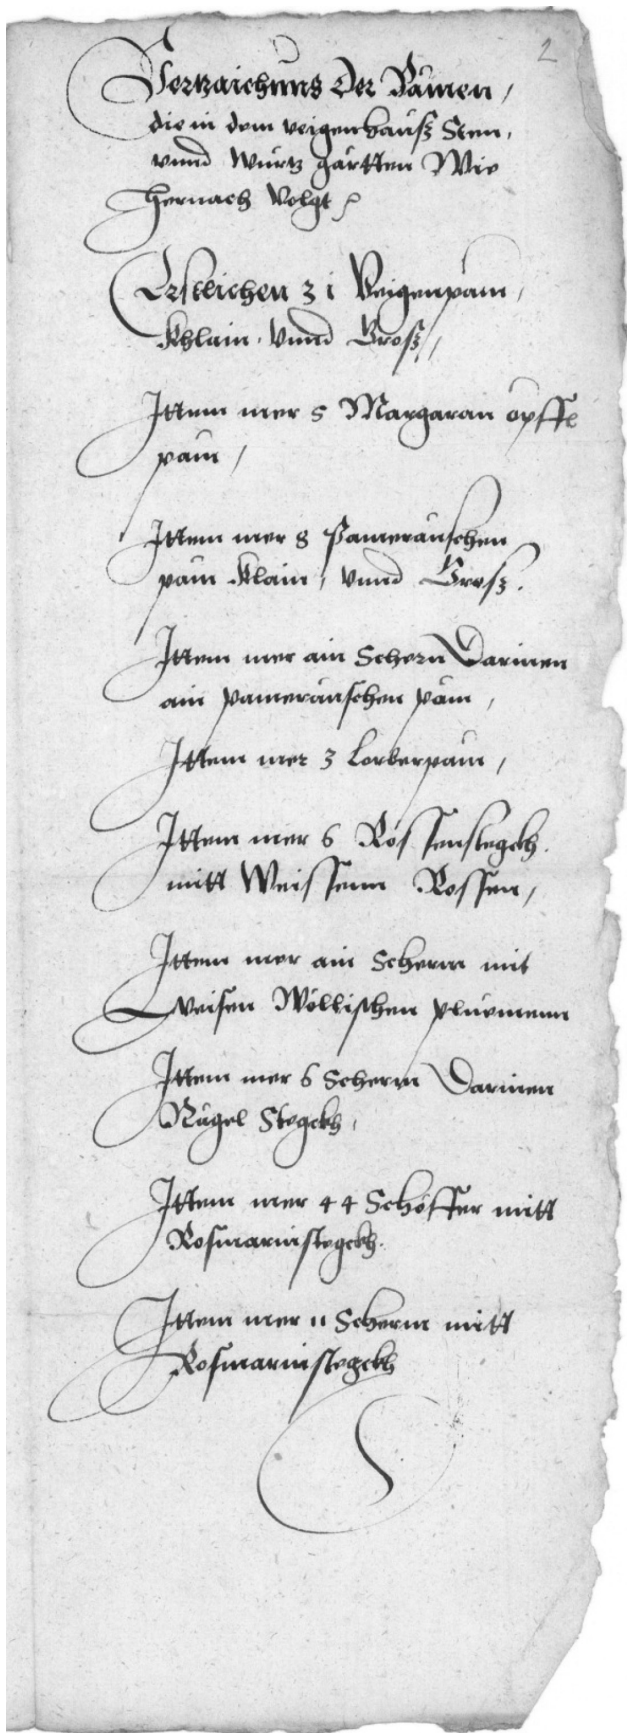 2
Vertzaichnus Der Pämen,
die in dem veigenhauß Sten,
vnnd Wurtz gartten Wie
hernach Volgt
Erstlichen 31 Veigenpäm,
Khlain, Vnnd Groß,
Ittem mer 5 Margaran öpffl
päm,
Ittem mer 8 Pameräntschen
päm Klain, vnnd Grosz.
Ittem mer ain Scherm Darinen
ain pameräntschen päm,
Ittem mer 3 Lorberpäm,
Ittem mer 6 Rossenstegckh.
mitt Weissenn Rossen,
Ittem mer ain Scherm mit
Weisen Wöllischen pluemenn
Ittem mer 6 Scherm Darinen
Nägel Stegckh,
Ittem mer 44 Schöffer mitt
Rosmarinstegckh.
Ittem mer 11 Scherm mitt
Rosmarinstegckh